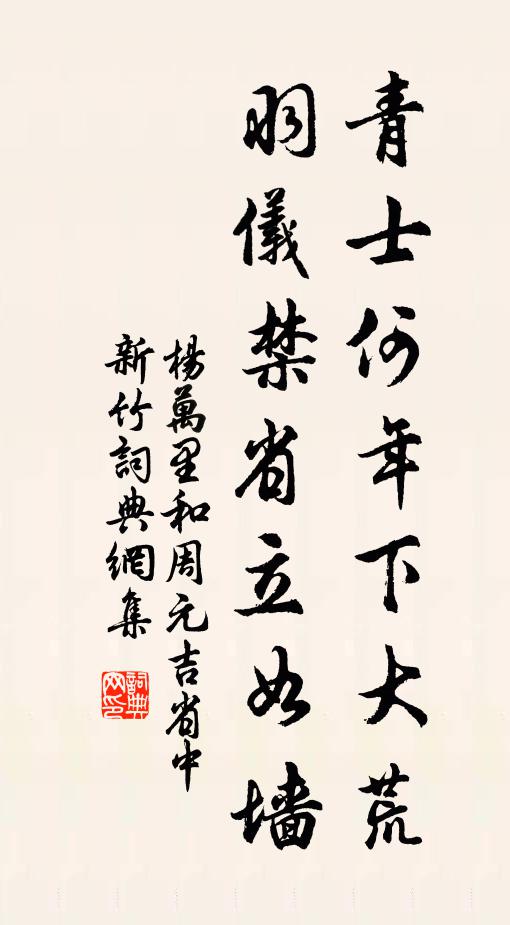 青士何年下大荒
羽儀禁省立如墙
楊萬里和周元吉省中
新竹詞典網集
詞典网印